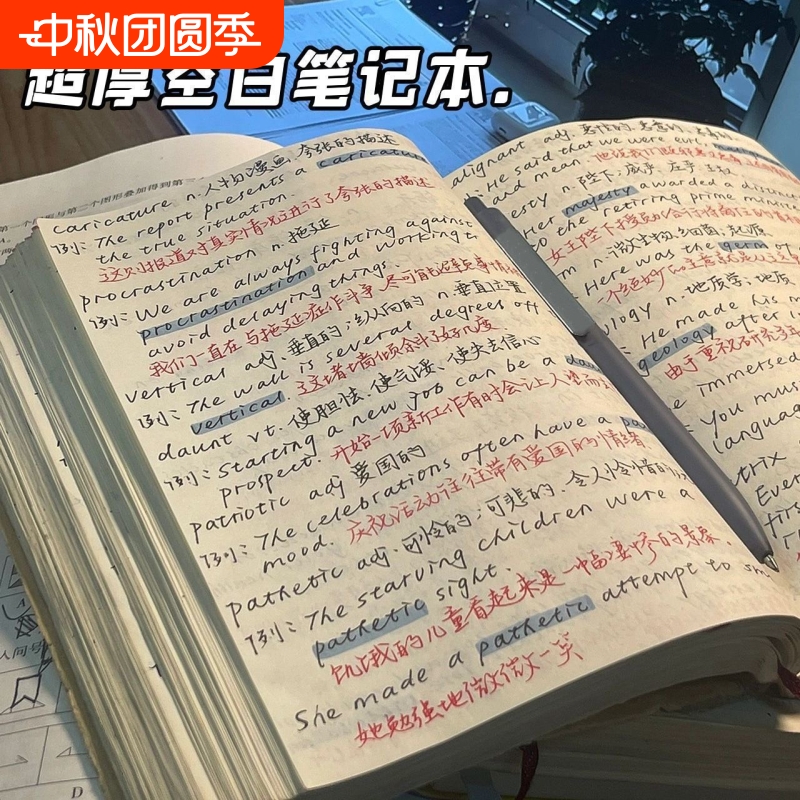 中秋团圆季
超厚空白笔记本.
caricature n.人物漫画,夸张的描述
例: The report presents a caricature
the true situation.
这则报道对真实情况进行了夸张的描述
procrastination n.拖延
例: We are always fighting against
procrastination and working to
avoid delaying things.
我们一直在与拖延症作斗争
vertical adj.垂直的;纵向的 n.垂直位置
例: The wall is several degrees off
vertical. 这堵墙倾斜了好几度
daunt vt.使胆怯,使气馁,使失去信心
例: Starting a new job can be a
prospect. 开始一项新工作有时会让人望而
patriotic adj 爱国的
例: The celebrations often have a
mood. 庆祝活动往往带有爱国的情绪
pathetic adj.可怜的;可悲的,令人怜惜的
例: The starving children were a
pathetic sight.
饥饿的儿童看起来是一幅凄惨的景象.
She made a pathetic attempt to
她勉强地微微一笑
alignant adj.
: He said that we were evil
and mean.
esty n.陛下,威严,庄严,王权
Her majesty awarded a
to the retiring prime
n.微生物,细菌;起源
Here was the germ of
ology n.地质学;地质
: He made his
geology after
由于重视
immersed
You must
language
trix
Ever
first
第一个图形与第二个图形叠加得到第三
D